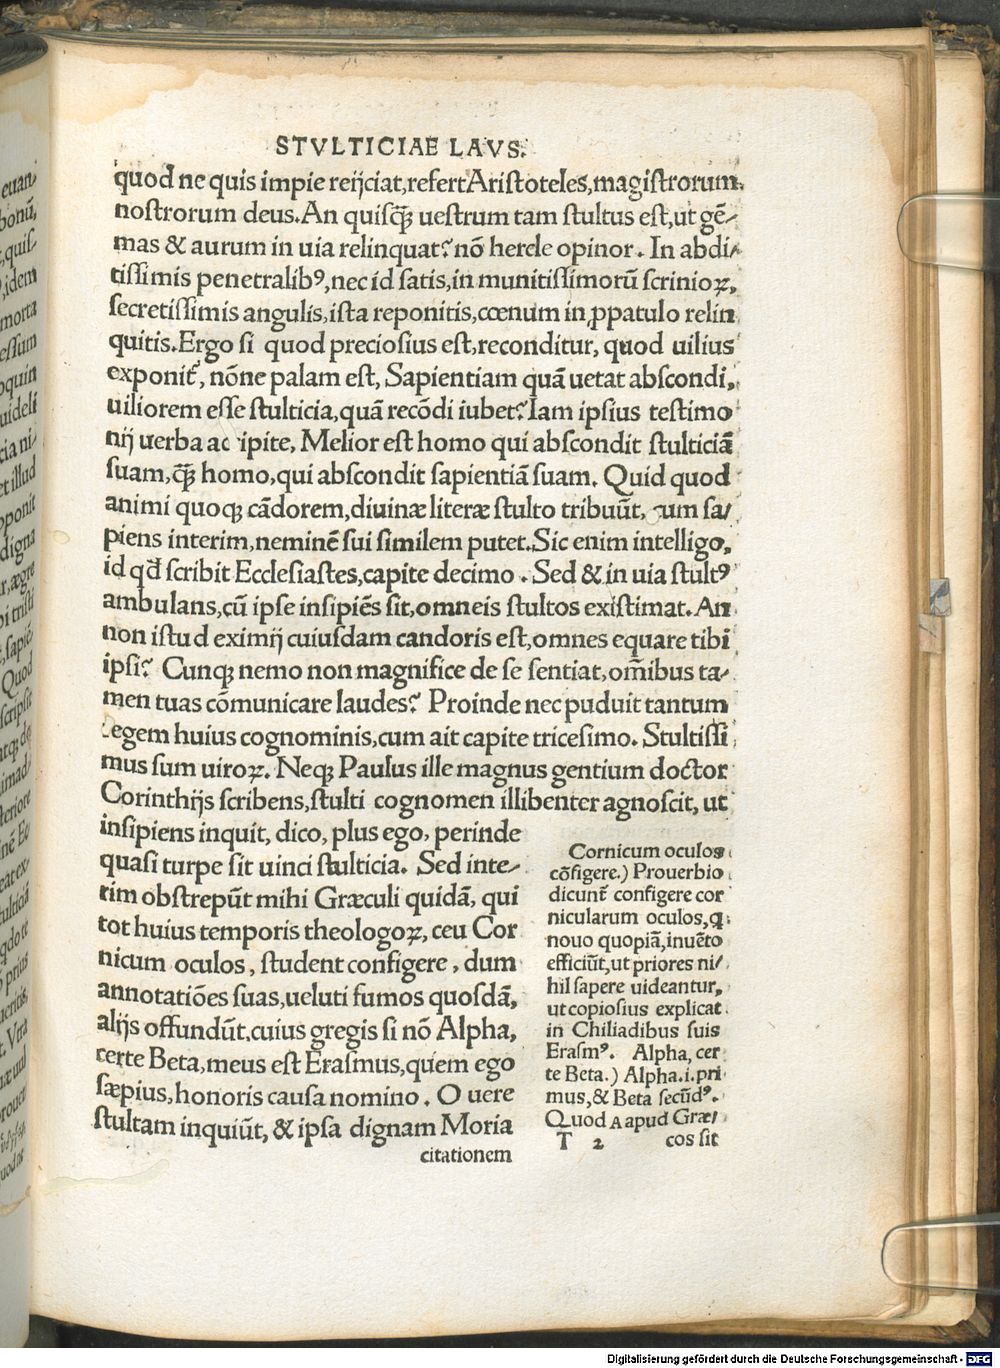 STVLTICIAE LAVS.
quod ne quis impie reijciat,refert Aristoteles,magistrorum
nostrorum deus.An quisq̃ uestrum tam stultus est,ut gē-
mas & aurum in uia relinquat? nō hercle opinor. In abdi-
tissimis penetralibꝰ,nec id satis,in munitissimorū scrinioꝝ,
secretissimis angulis,ista reponitis,cœnum in ꝓpatulo relin
quitis.Ergo si quod preciosius est,reconditur, quod uilius
exponit᷑, nōne palam est, Sapientiam quā uetat abscondi,
uiliorem esse stulticia,quā recōdi iubet? Iam ipsius testimo
nij uerba ac ipite, Melior est homo qui abscondit stulticiā
suam,q̃ homo,qui abscondit sapientiā suam. Quid quod
animi quoqꝫ cādorem,diuinæ literæ stulto tribuūt, cum sa-
piens interim,neminē sui similem putet.Sic enim intelligo,
id qđ scribit Ecclesiastes,capite decimo. Sed & in uia stultꝰ
ambulans,cū ipse insipiēs sit,omneis stultos existimat. An
non istud eximij cuiusdam candoris est,omnes equare tibi
ipsi? Cunqꝫ nemo non magnifice de se sentiat,om̄ibus ta-
men tuas cōmunicare laudes? Proinde nec puduit tantum
regem huius cognominis,cum ait capite tricesimo. Stultissi
mus sum uiroꝝ. Neqꝫ Paulus ille magnus gentium doctor
Corinthijs scribens,stulti cognomen illibenter agnoscit, ut
insipiens inquit, dico, plus ego, perinde
quasi turpe sit uinci stulticia. Sed inte-
rim obstrepūt mihi Græculi quidā, qui
tot huius temporis theologoꝝ, ceu Cor
nicum oculos, student configere, dum
annotatiōes suas,ueluti fumos quosdā,
alijs offundūt,cuius gregis si nō Alpha,
certe Beta,meus est Erasmus,quem ego
sæpius,honoris causa nomino. O uere
stultam inquiūt, & ipsa dignam Moria
citationem
Cornicum oculos
cōfigere.) Prouerbio
dicunt᷑ configere cor
nicularum oculos,q
nouo quopiā,inuēto
efficiūt,ut priores ni-
hil sapere uideantur,
ut copiosius explicat
in Chiliadibus suis
Erasmꝰ. Alpha, cer
te Beta.) Alpha.i.pri
mus,& Beta secūdꝰ.
Quod A apud Græ-
cos sit
T 2
Digitalisierung gefördert durch die Deutsche Forschungsgemeinschaft - DFG